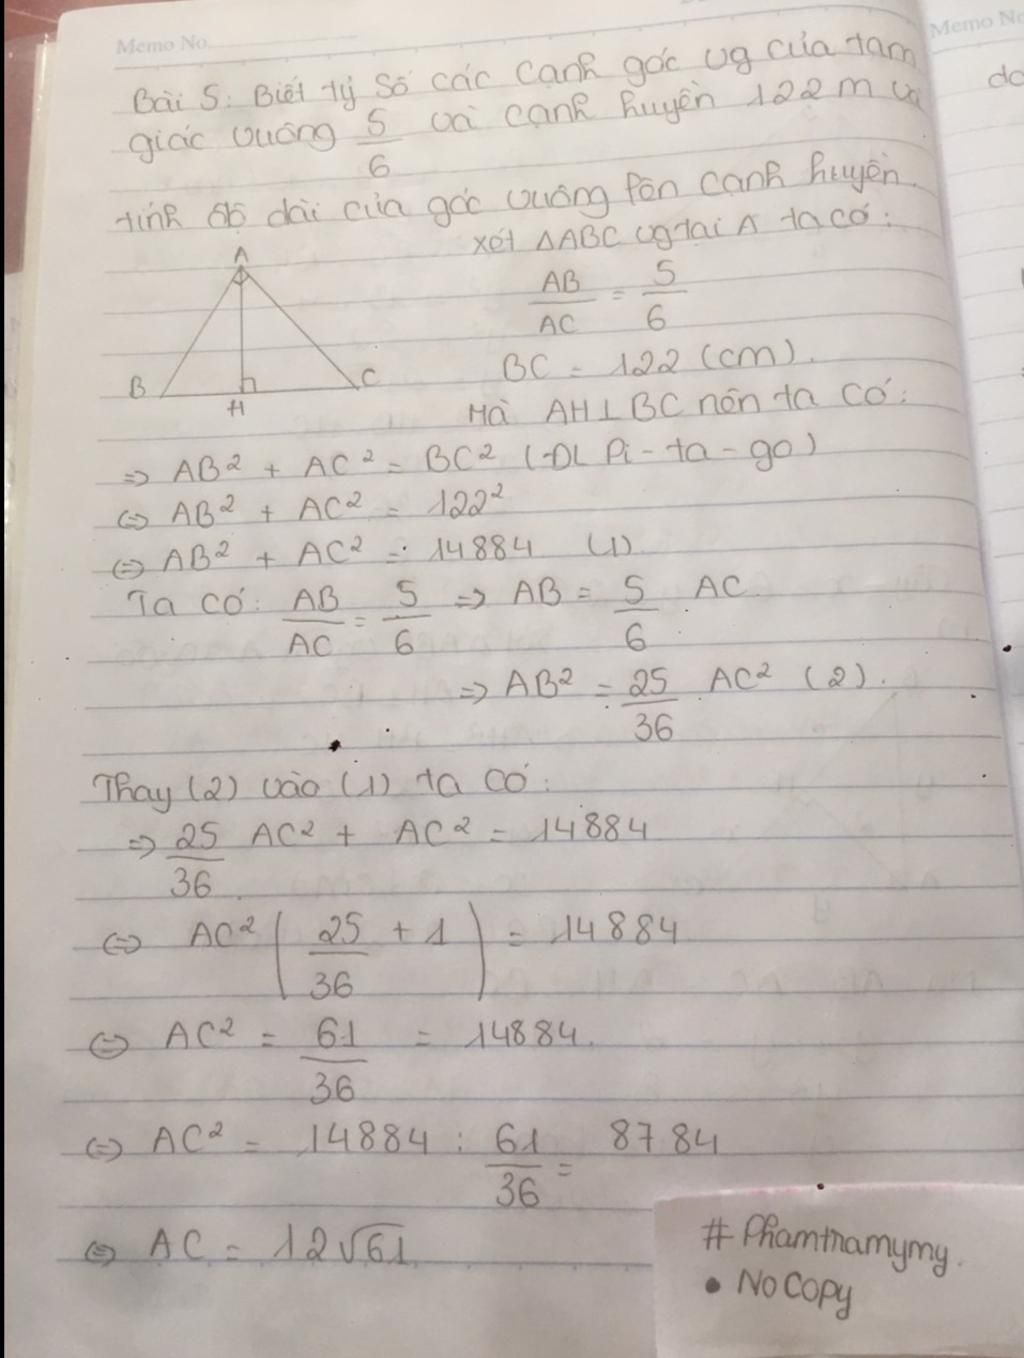 Memo No.
Memo No
do
Bài 5: Biết tỷ số các cạnh góc vg của tam
giác vuông 5/6 và cạnh huyền 122 m và
tính độ dài của góc vuông lên cạnh huyền.
xét ΔABC vg tại A ta có:
AB/AC = 5/6
BC = 122 (cm).
Mà AH⊥BC nên ta có:
A
B
H
C
=> AB² + AC² = BC² (ĐL Pi-ta-go)
<=> AB² + AC² = 122²
<=> AB² + AC² = 14884 (1)
Ta có: AB/AC = 5/6 => AB = 5/6 AC
=> AB² = 25/36 AC² (2).
Thay (2) vào (1) ta có:
=> 25/36 AC² + AC² = 14884
<=> AC² (25/36 + 1) = 14884
<=> AC² = 61/36 = 14884.
<=> AC² = 14884 : 61/36 = 8784
<=> AC = 12√61
# Phamtramymy.
• No Copy